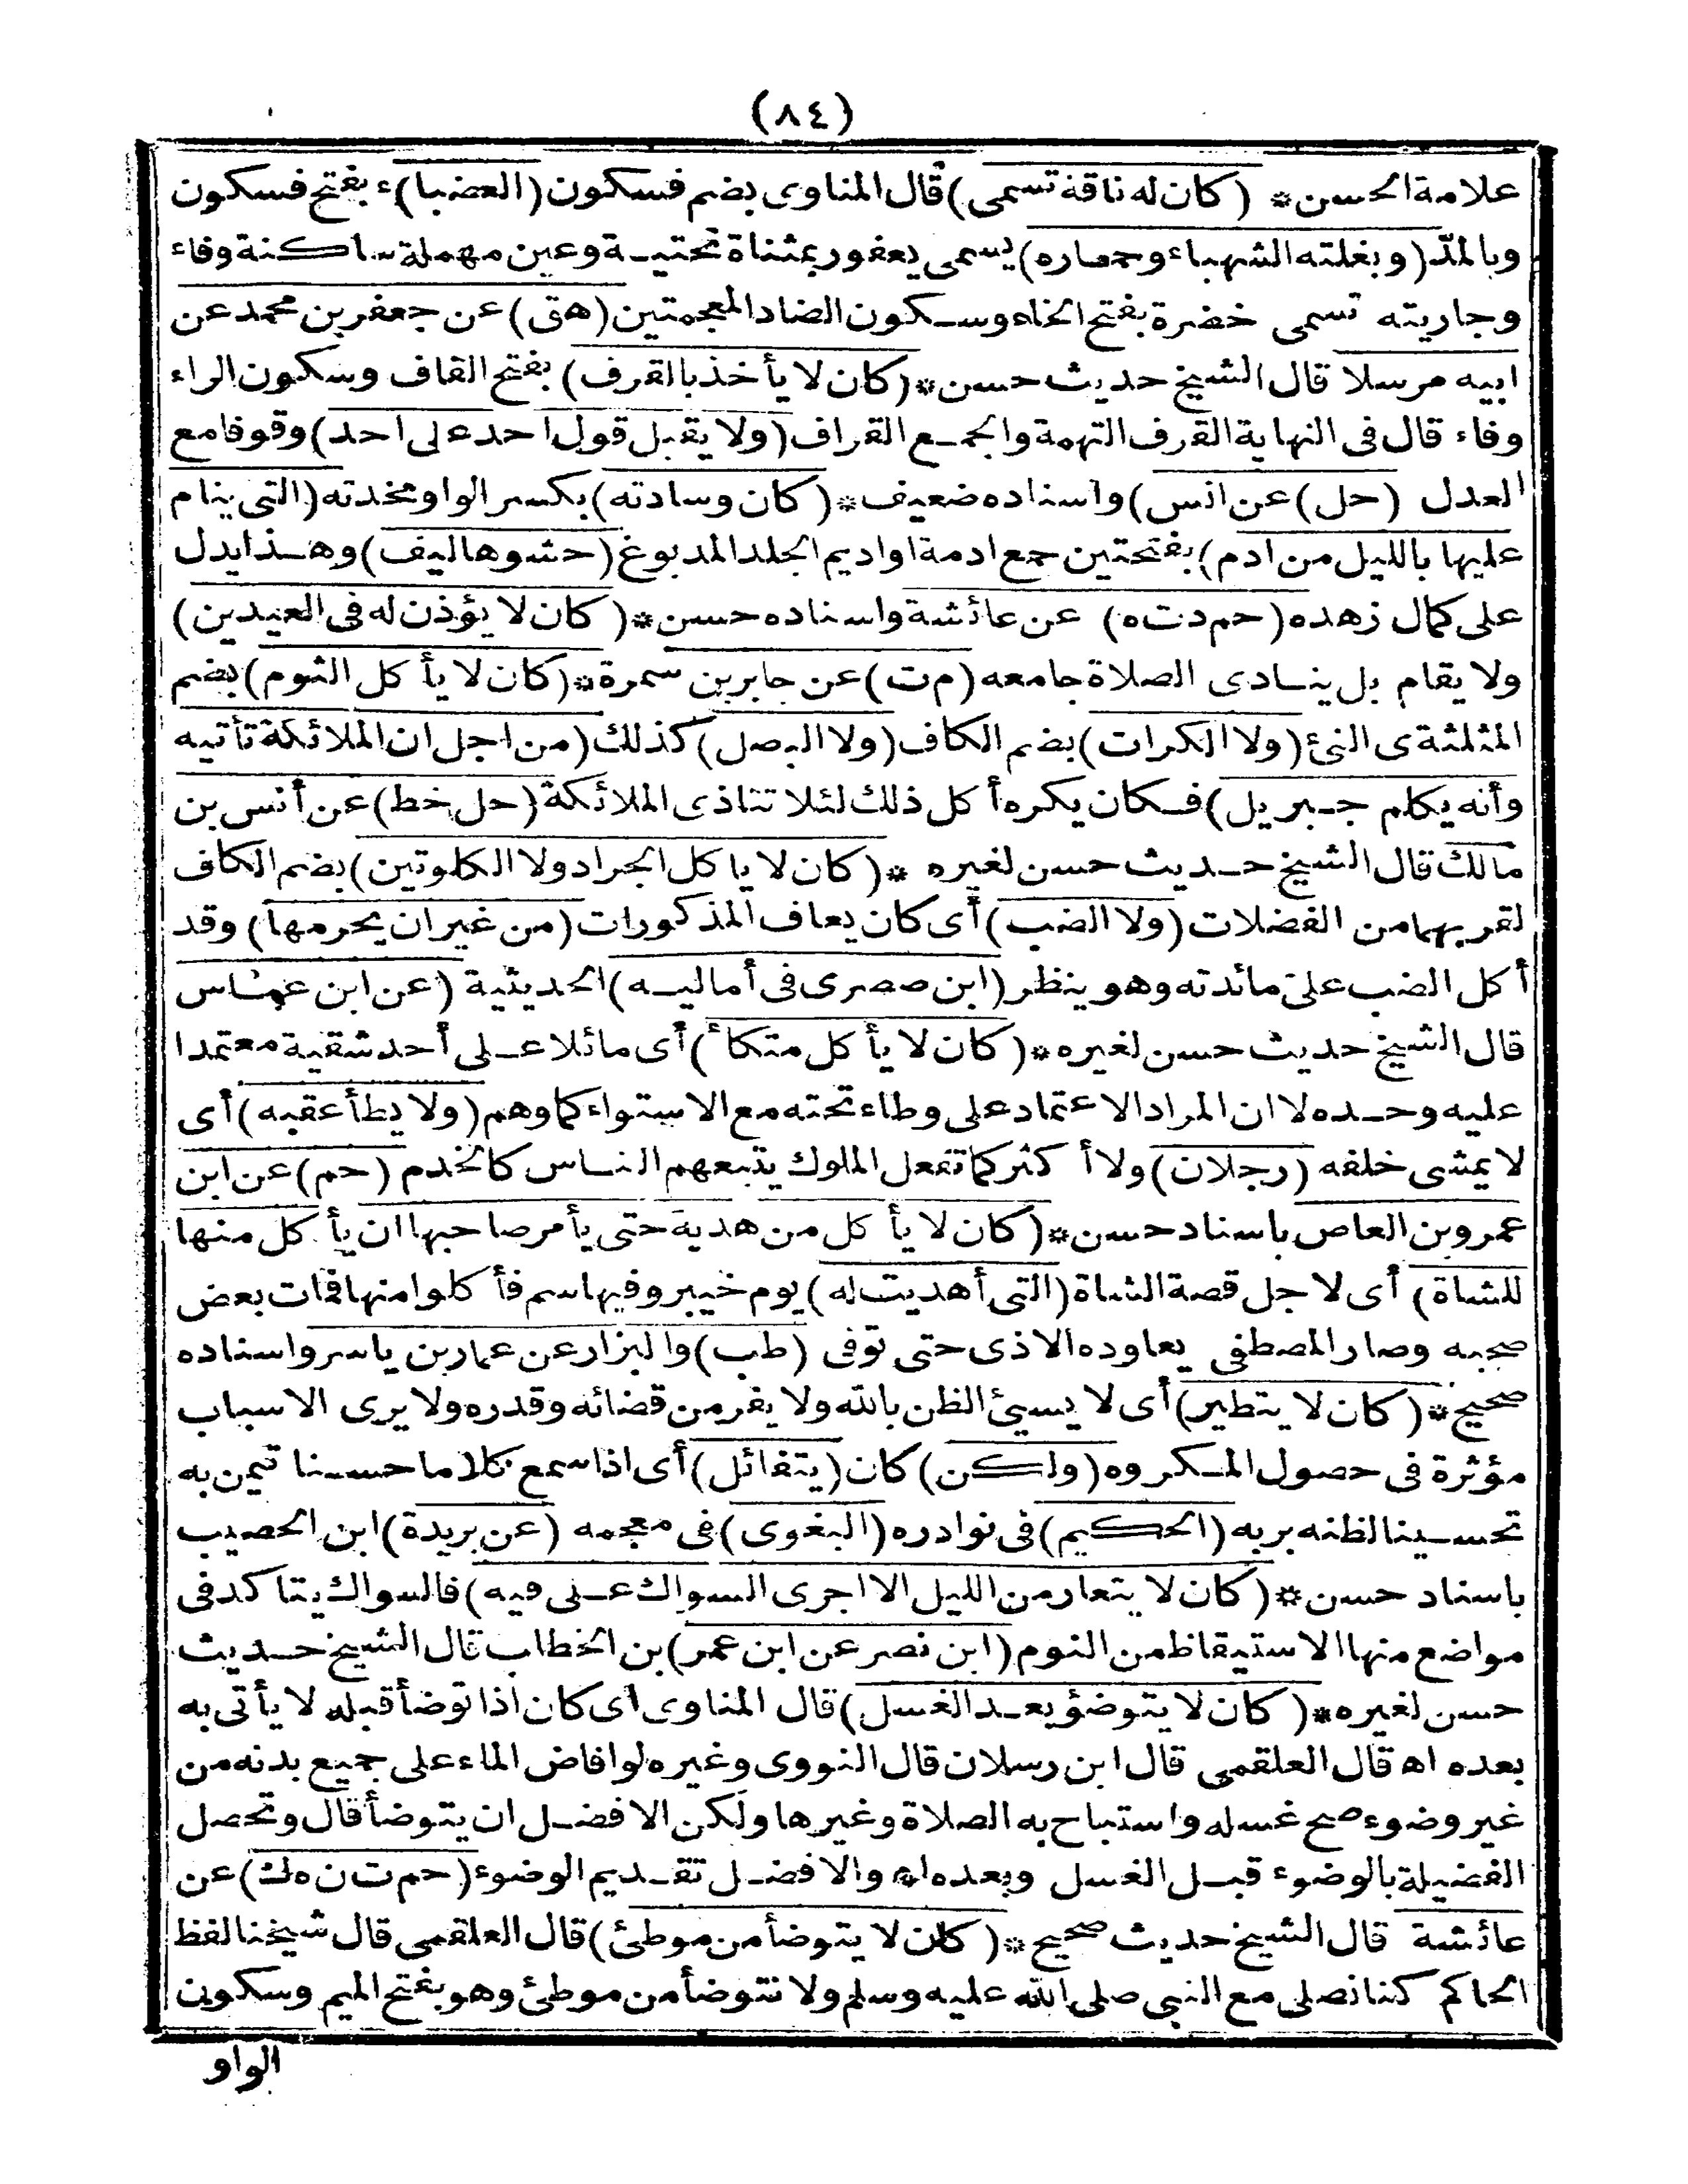 (٨٤)
علامة الحسن * (كان له ناقة تسمى) قال المناوى بضم فسكون (العضبا)ء بفتح فسكون
وبالمدّ (وبغلته الشهباء وحماره) يسمى يعفور بمثناة تحتيـة وعين مهملة ساكنة وفاء
وجاريته تسمى خضرة بفتح الخاء وسكون الضاد المعجمتين (هق) عن جعفر بن محمد عن
ابيه مرسلا قال الشيخ حديث حسن * (كان لا يأخذ بالقرف) بفتح القاف وسكون الراء
وفاء قال فى النهاية القرف التهمة والجمع القراف (ولا يقبل قول احد على احد) وقوفا مع
العدل (حل) عن انس) واسناده ضعيف * (كان وسادته) بكسر الواو مخدته (التى ينام
عليها بالليل من ادم) بفتحتين جمع ادمة او اديم الجلد المدبوغ (حشوها ليف) وهذا يدل
على كمال زهده (حم د ت ه) عن عائشة واسناده حسن * (كان لا يؤذن له فى العيدين)
ولا يقام بل ينادى الصلاة جامعه (م ت) عن جابر بن سمرة * (كان لا يأكل الثوم) بضم
المثلثة ى النئ (ولا الكرات) بضم الكاف (ولا البصل) كذلك (من اجل ان الملائكة تأتيه
وأنه يكلم جبريل) فكان يكره أكل ذلك لئلا تتاذى الملائكة (حل خط) عن أنس بن
مالك قال الشيخ حديث حسن لغيره * (كان لا ياكل الجراد ولا الكلوتين) بضم الكاف
لقربهما من الفضلات (ولا الضب) أى كان يعاف المذكورات (من غير ان يحرمها) وقد
أكل الضب على مائدته وهو ينظر (ابن صصرى فى أماليـه) الحديثية (عن ابن عباس
قال الشيخ حديث حسن لغيره * (كان لا يأكل متكأ) أى مائلا على أحد شقية معتمدا
عليه وحده لا ان المراد الاعتماد على وطاء تحته مع الاستواء كما وهم (ولا يطأ عقبه) أى
لا يمشى خلفه (رجلان) ولا أكثر كما تفعل الملوك يتبعهم الناس كالخدم (حم) عن ابن
عمرو بن العاص باسناد حسن * (كان لا يأكل من هدية حتى يأمر صاحبها ان يأكل منها
للشاة) أى لاجل قصة الشاة (التى أهديت له) يوم خيبر وفيها سم فأكلوا منها فات بعض
صحبه وصار المصطفى يعاوده الاذى حتى توفى (طب) والبزار عن عمار بن ياسر واسناده
صحيح * (كان لا يتطير) أى لا يسيئ الظن بالله ولا يفر من قضائه وقدره ولا يرى الاسباب
مؤثرة فى حصول المكروه (ولكن) كان (يتفائل) أى اذا سمع كلاما حسنا تيمن به
تحسينا لظنه بربه (الحكيم) فى نوادره (البغوى) فى معجمه (عن بريدة) ابن الحصيب
باسناد حسن * (كان لا يتعار من الليل الا اجرى السواك على فيه) فالسواك يتاكد فى
مواضع منها الاستيقاظ من النوم (ابن نصر عن ابن عمر) بن الخطاب قال الشيخ حديث
حسن لغيره * (كان لا يتوضؤ بعد الغسل) قال المناوى اى كان اذا توضأ قبله لا يأتى به
بعده اه قال العلقمى قال ابن رسلان قال النووى وغيره لو افاض الماء على جميع بدنه من
غير وضوء صح غسله واستباح به الصلاة وغيرها ولكن الافضل ان يتوضأ قال وتحصل
الفضيلة بالوضوء قبل الغسل وبعده اه والافضل تقديم الوضوء (حم ت ن ه ك) عن
عائشة قال الشيخ حديث صحيح * (كان لا يتوضأ من موطئ) قال العلقمى قال شيخنا لفظ
الحاكم كنا نصلى مع النبى صلى الله عليه وسلم ولا نتوضأ من موطئ وهو بفتح الميم وسكون
الواو